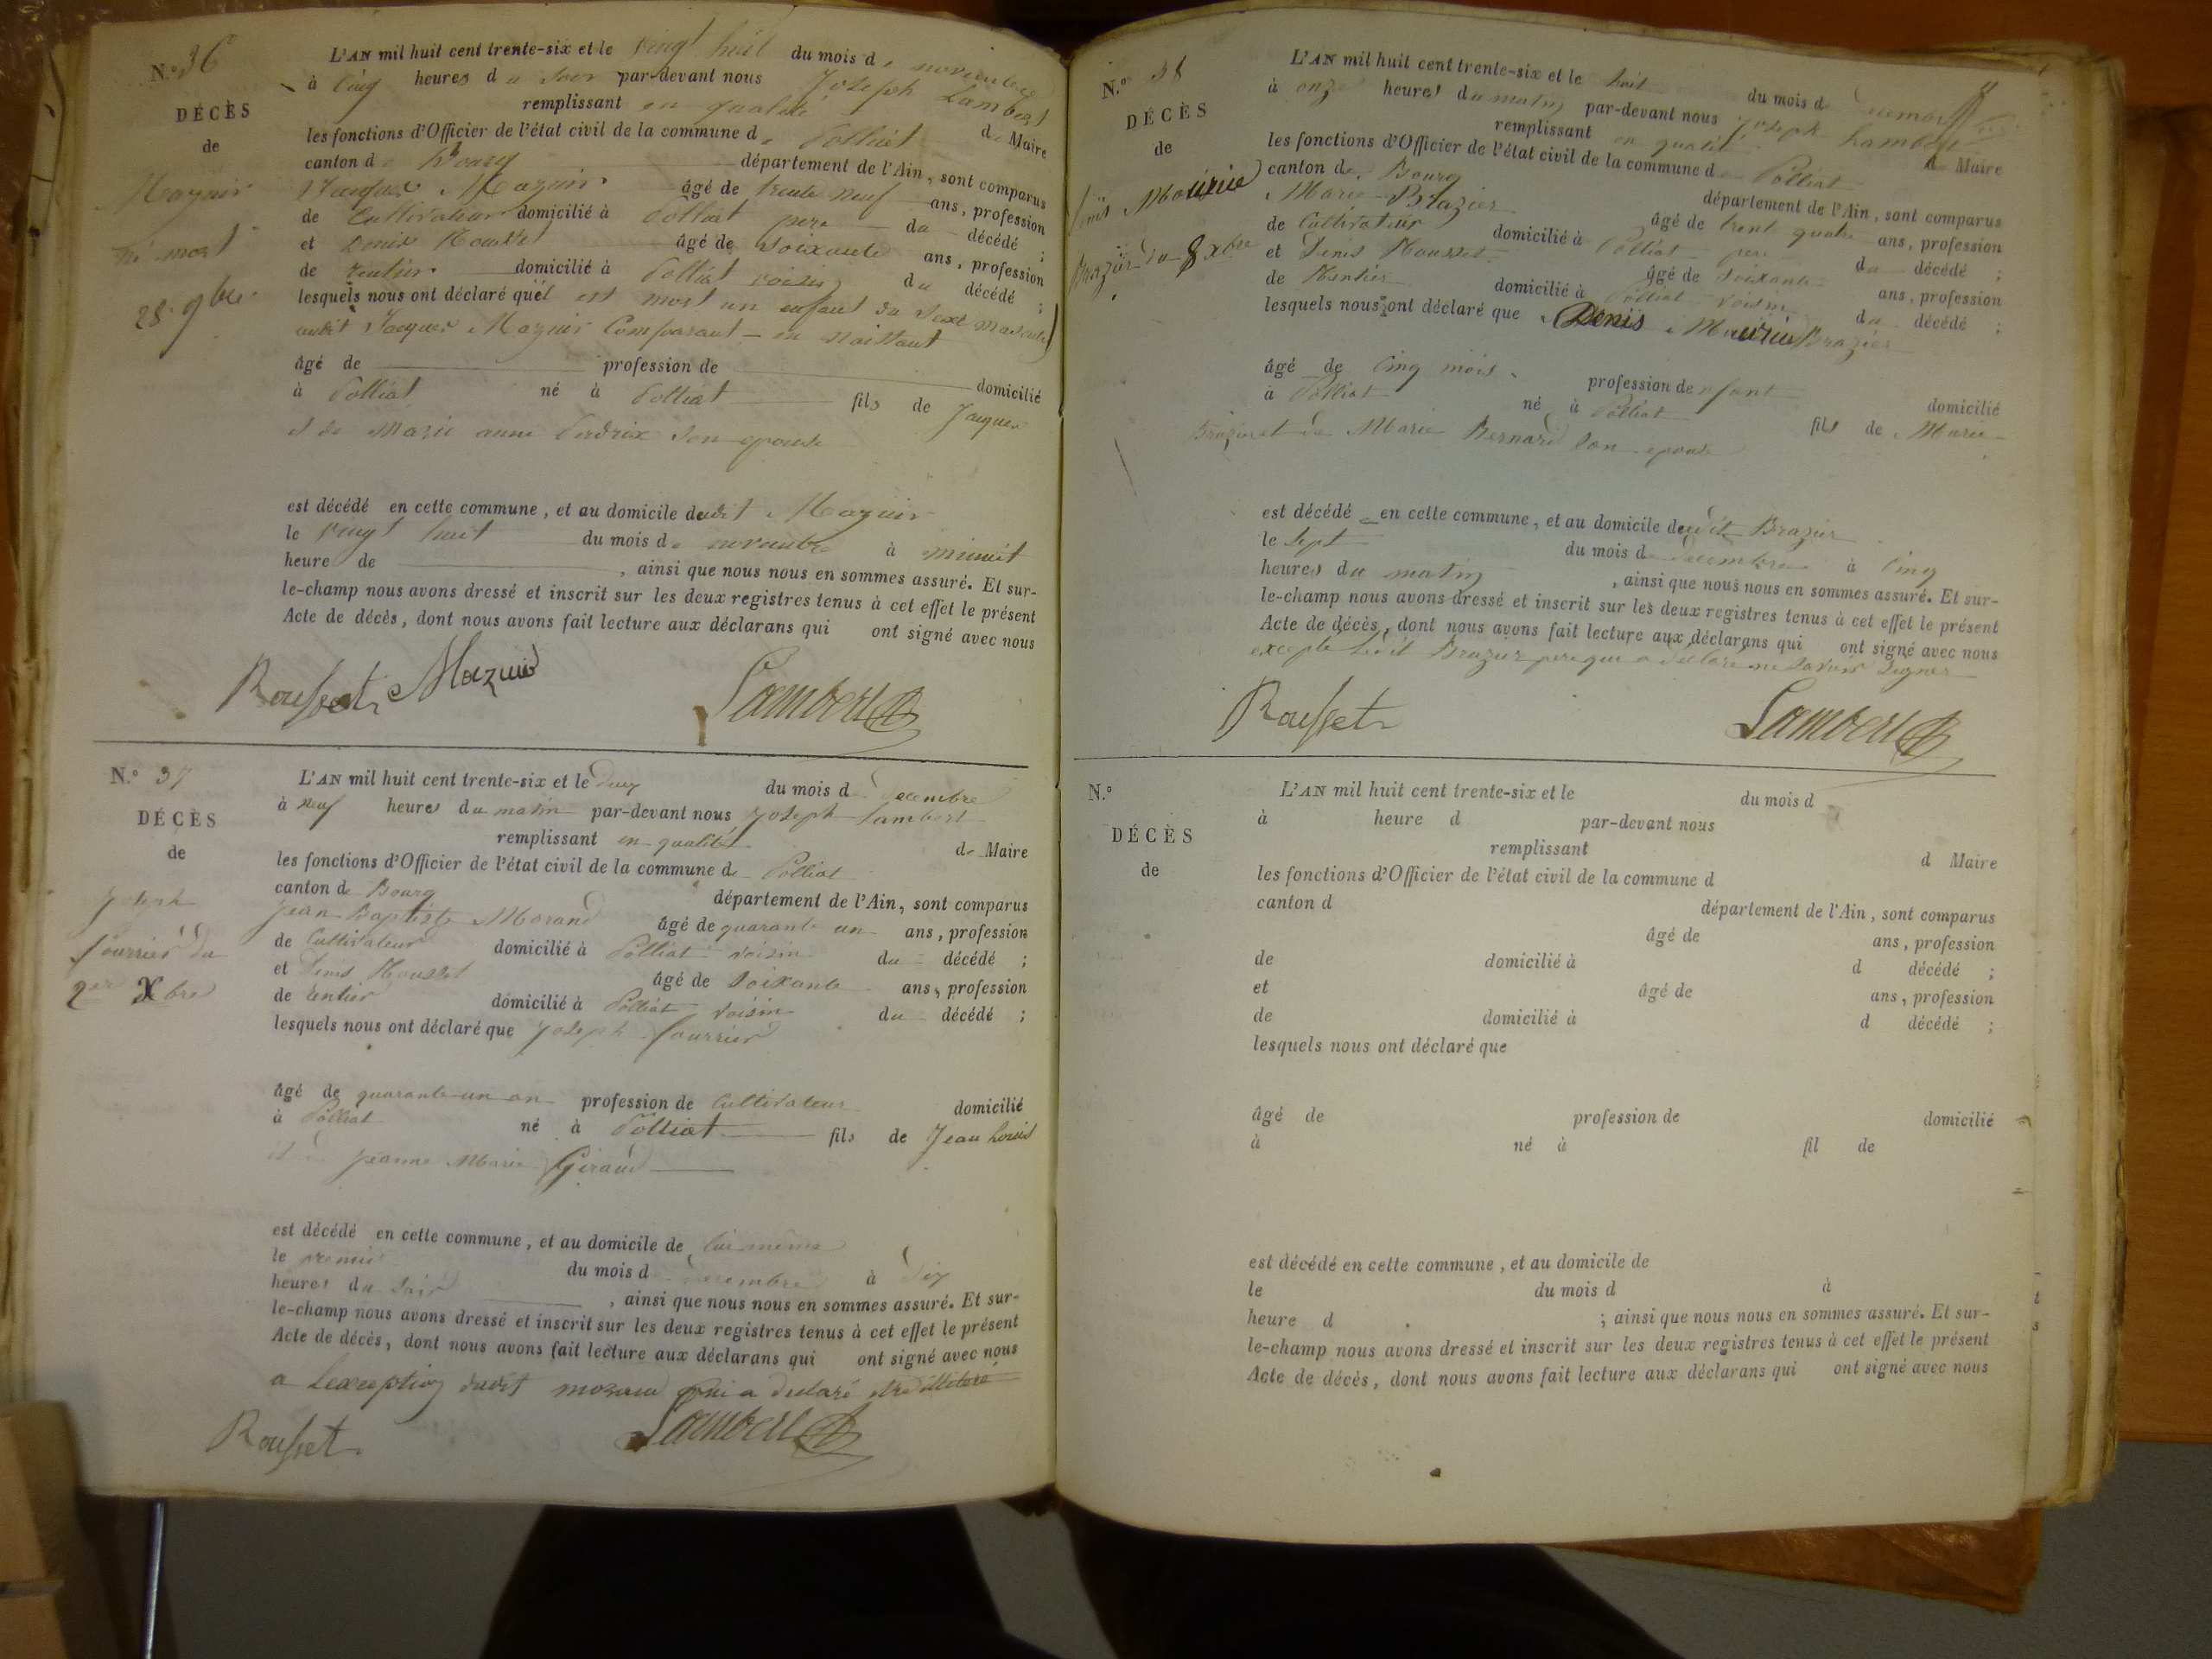 N.º 36
DÉCÈS
de
Mazuir
né mort
28. 9bre.
L'AN mil huit cent trente-six et le vingt huit du mois de novembre
à Cinq heures du soir par-devant nous Joseph Lambert
remplissant en qualité de Maire
les fonctions d'Officier de l'état civil de la commune de Polliat
canton de Bourg département de l'Ain, sont comparus
Jacques Mazuir âgé de trente neuf ans, profession
de Cultivateur domicilié à Polliat pere du décédé ;
et Denis Rousset âgé de Soixante ans, profession
de rentier domicilié à Polliat voisin du décédé ;
lesquels nous ont déclaré quel est mort un enfant du Sexe masculin
audit Jacques Mazuir Comparant - en naissant
âgé de profession de domicilié
à Polliat né à Polliat fils de Jacques
et de Marie anne Perdrix son epouse
est décédé en cette commune, et au domicile dudit Mazuir
le vingt huit du mois de novembre à minuit
heure de , ainsi que nous nous en sommes assuré. Et sur-
le-champ nous avons dressé et inscrit sur les deux registres tenus à cet effet le présent
Acte de décès, dont nous avons fait lecture aux déclarans qui ont signé avec nous
Rousset Mazuir Lambert
N.º 37
DÉCÈS
de
Joseph
fourrier du
2 Xbre
L'AN mil huit cent trente-six et le deux du mois de decembre
à neuf heures du matin par-devant nous Joseph Lambert
remplissant en qualité de Maire
les fonctions d'Officier de l'état civil de la commune de Polliat
canton de Bourg département de l'Ain, sont comparus
Jean Baptiste Morand âgé de quarante un ans, profession
de Cultivateur domicilié à Polliat voisin du décédé ;
et Denis Rousset âgé de Soixante ans, profession
de rentier domicilié à Polliat voisin du décédé ;
lesquels nous ont déclaré que Joseph fourrier
âgé de quarante-un an profession de Cultivateur domicilié
à Polliat né à Polliat fils de Jean Louis
et de Jeanne Marie Giraud
est décédé en cette commune, et au domicile de lui même
le premier du mois de decembre à dix
heures du soir , ainsi que nous nous en sommes assuré. Et sur-
le-champ nous avons dressé et inscrit sur les deux registres tenus à cet effet le présent
Acte de décès, dont nous avons fait lecture aux déclarans qui ont signé avec nous
a Lexception dudit morand qui a declaré etre illetéré
Rousset Lambert
N.º 38
DÉCÈS
de
Denis Maurice
Brazier du 8 Xbre
L'AN mil huit cent trente-six et le huit du mois de decembre
à onze heures du matin par-devant nous Joseph Lambert
remplissant en qualité de Maire
les fonctions d'Officier de l'état civil de la commune de Polliat
canton de Bourg département de l'Ain, sont comparus
Marie Brazier âgé de trente quatre ans, profession
de Cultivateur domicilié à Polliat pere du décédé ;
et Denis Rousset âgé de Soixante ans, profession
de Rentier domicilié à Polliat voisin du décédé ;
lesquels nous ont déclaré que Denis Maurice Brazier
âgé de Cinq mois profession de enfant domicilié
à Polliat né à Polliat fils de Marie
Brazier et de Marie Bernard son epouse
est décédé en cette commune, et au domicile dudit Brazier
le Sept du mois de decembre à Cinq
heures du matin , ainsi que nous nous en sommes assuré. Et sur-
le-champ nous avons dressé et inscrit sur les deux registres tenus à cet effet le présent
Acte de décès, dont nous avons fait lecture aux déclarans qui ont signé avec nous
excepté Ledit Brazier pere qui a declaré ne savoir signer
Rousset Lambert
N.º
DÉCÈS
de
L'AN mil huit cent trente-six et le du mois d
à heure d par-devant nous
remplissant d Maire
les fonctions d'Officier de l'état civil de la commune d
canton d département de l'Ain, sont comparus
âgé de ans, profession
de domicilié à d décédé ;
et âgé de ans, profession
de domicilié à d décédé ;
lesquels nous ont déclaré que
âgé de profession de domicilié
à né à fil de
est décédé en cette commune, et au domicile de
le du mois d à
heure d ; ainsi que nous nous en sommes assuré. Et sur-
le-champ nous avons dressé et inscrit sur les deux registres tenus à cet effet le présent
Acte de décès, dont nous avons fait lecture aux déclarans qui ont signé avec nous